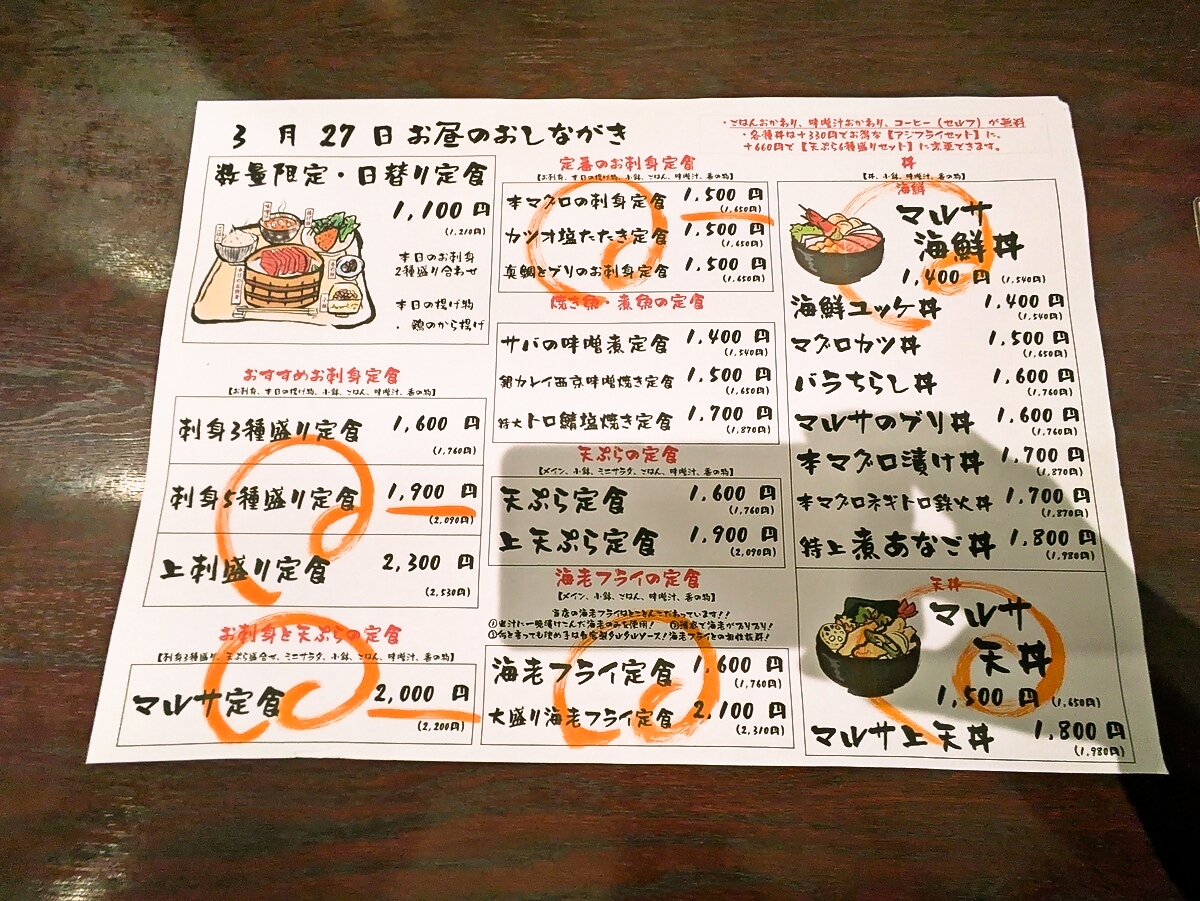 3月27日お昼のおしながき
・ごはんおかわり、味噌汁おかわり、コーヒー(セルフ)が無料
・各種丼は+330円でお得な【アジフライセット】に、
+660円で【天ぷら6種盛りセット】に変更できます。
数量限定・日替り定食
1,100円
(1,210円)
本日のお刺身
2種盛り合わせ
本日の揚げ物
・鶏のから揚げ
おすすめお刺身定食
【お刺身、本日の揚げ物、小鉢、ごはん、味噌汁、香の物】
刺身3種盛り定食 1,600円
(1,760円)
刺身5種盛り定食 1,900円
(2,090円)
上刺盛り定食 2,300円
(2,530円)
お刺身と天ぷらの定食
【刺身3種盛り、天ぷら盛合せ、ミニサラダ、ごはん、味噌汁、香の物】
マルサ定食 2,000円
(2,200円)
定番のお刺身定食
【お刺身、本日の揚げ物、小鉢、ごはん、味噌汁、香の物】
本マグロの刺身定食 1,500円
(1,650円)
カツオ塩たたき定食 1,500円
(1,650円)
真鯛とブリのお刺身定食 1,500円
(1,650円)
焼き魚・煮魚の定食
サバの味噌煮定食 1,400円
(1,540円)
銀カレイ西京味噌焼き定食 1,500円
(1,650円)
特大トロ鯖塩焼き定食 1,700円
(1,870円)
天ぷらの定食
【メイン、小鉢、ミニサラダ、ごはん、味噌汁、香の物】
天ぷら定食 1,600円
(1,760円)
上天ぷら定食 1,900円
(2,090円)
海老フライの定食
【メイン、小鉢、ごはん、味噌汁、香の物】
当店の海老フライはとことんこだわっています!!
①出汁に一晩漬けこんだ海老のみを使用! ②薄衣で海老がプリプリ!
③何と言っても決め手は自家製タルタルソース!海老フライとの相性抜群!
海老フライ定食 1,600円
(1,760円)
大盛り海老フライ定食 2,100円
(2,310円)
丼
【丼、小鉢、味噌汁、香の物】
海鮮
マルサ
海鮮丼
1,400円 (1,540円)
海鮮ユッケ丼 1,400円
(1,540円)
マグロカツ丼 1,500円
(1,650円)
バラちらし丼 1,600円
(1,760円)
マルサのブリ丼 1,600円
(1,760円)
本マグロ漬け丼 1,700円
(1,870円)
本マグロネギトロ鉄火丼 1,700円
(1,870円)
特上煮あなご丼 1,800円
(1,980円)
天丼
マルサ
天丼
1,500円 (1,650円)
マルサ上天丼 1,800円
(1,980円)